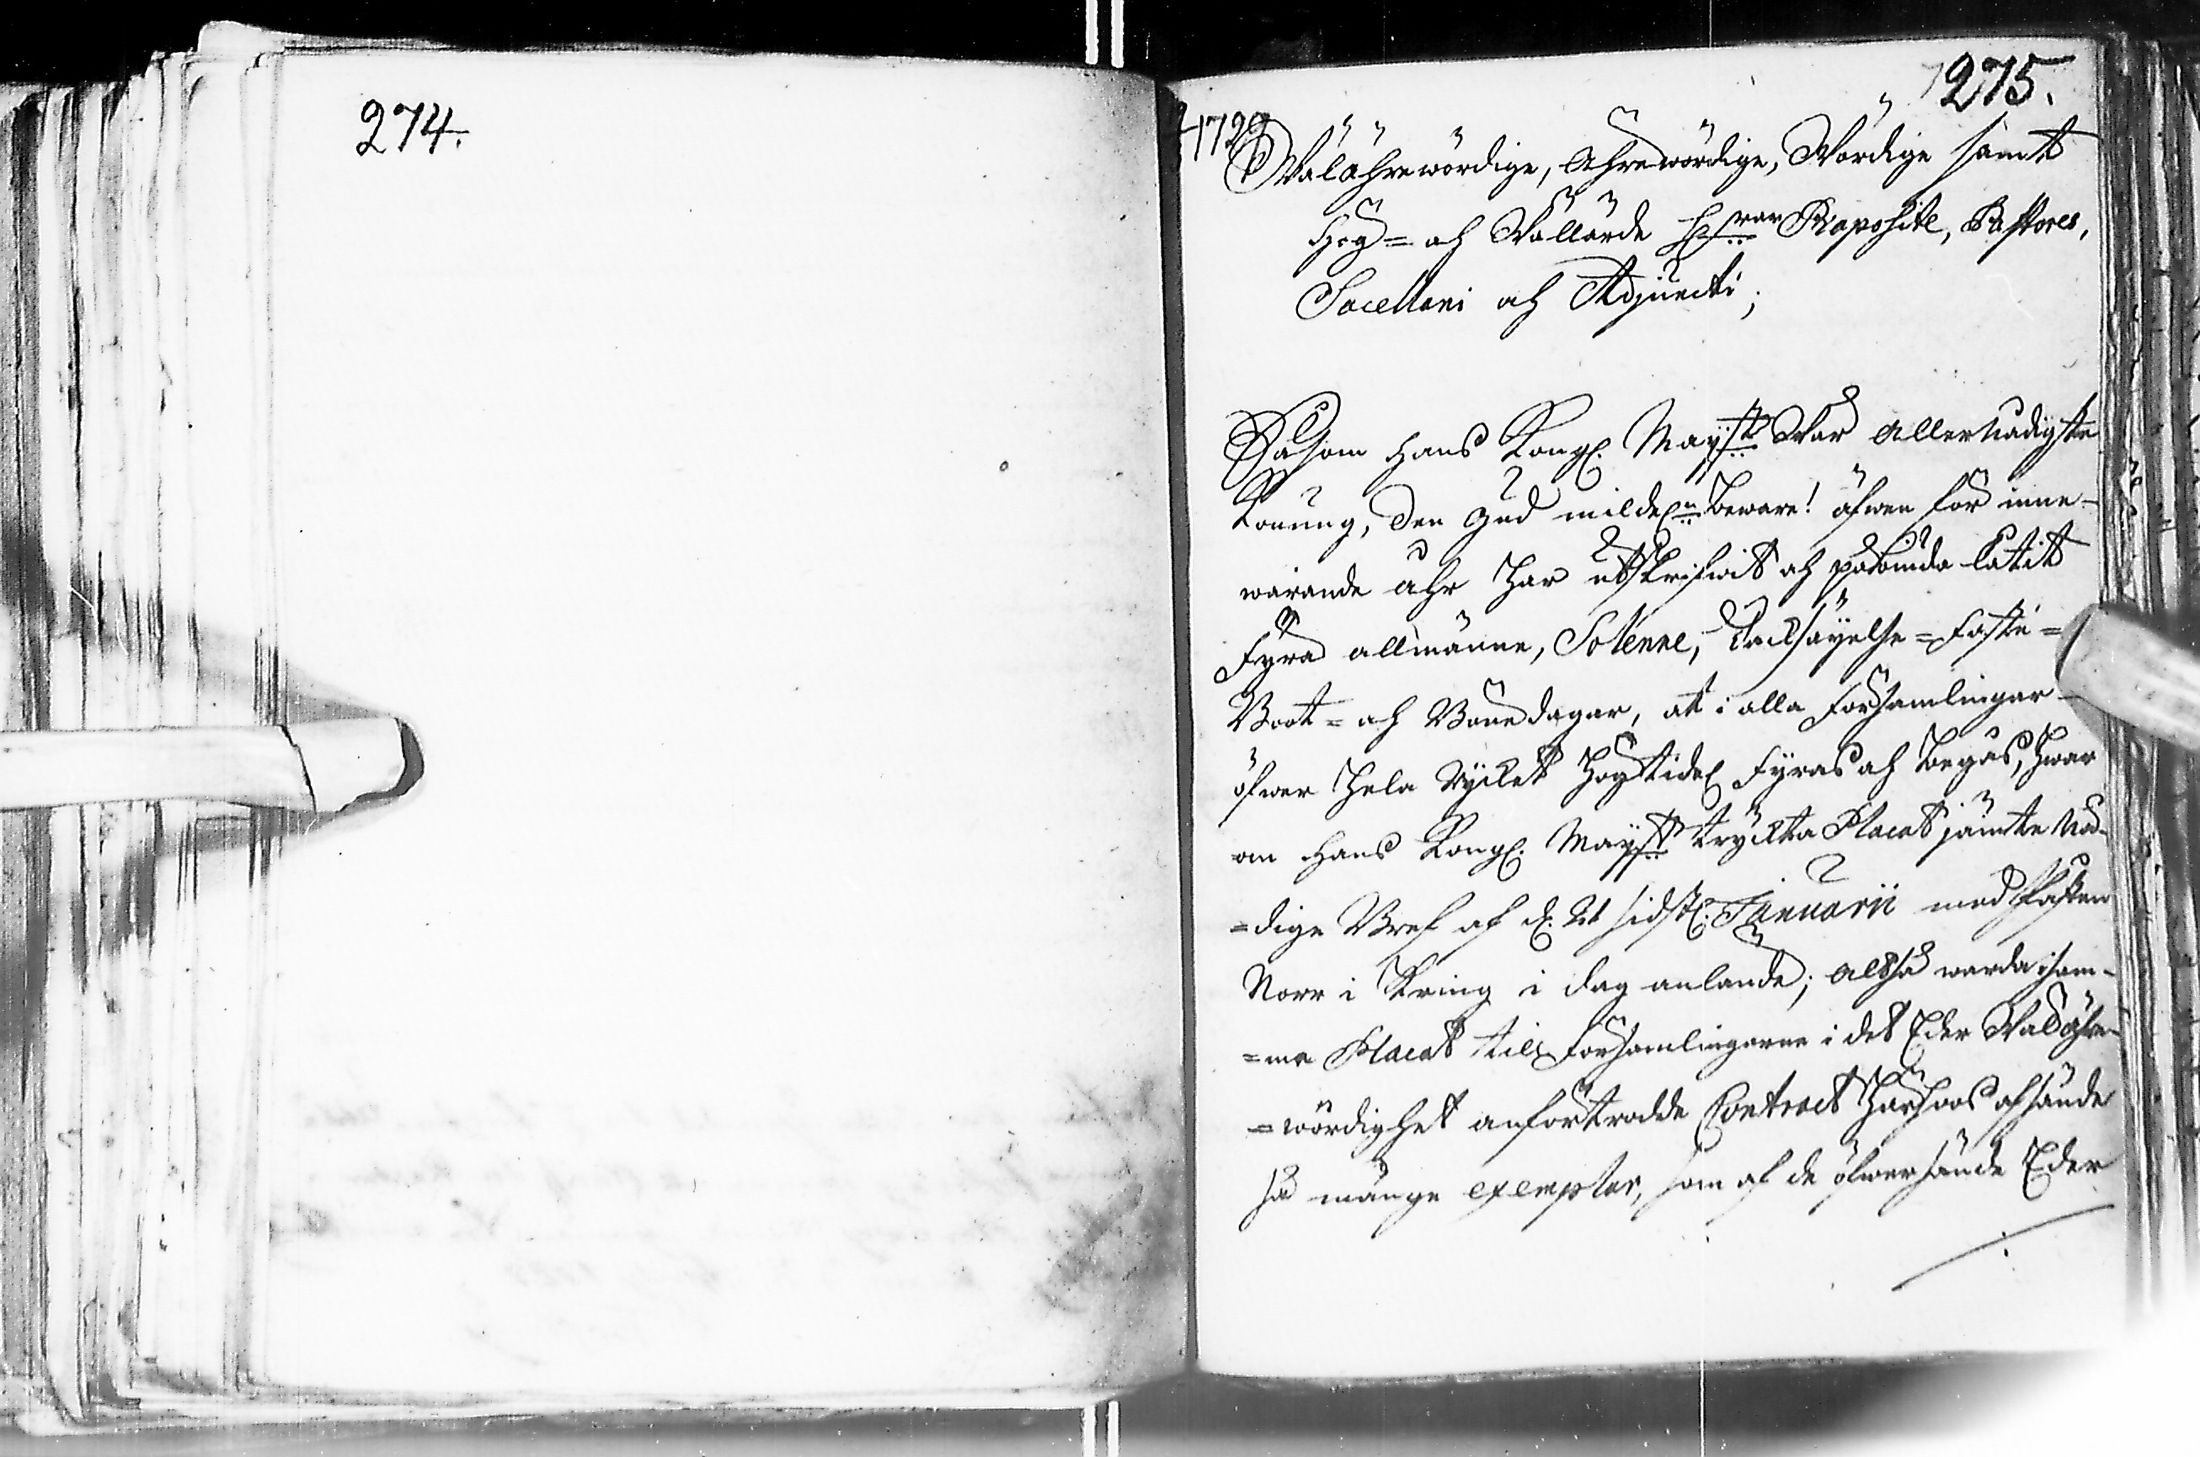 274.
275.
1729
Wälährewördige, Ährewördige, Wördige samt
Hög= och Wällärde H:rrar Præpositi, Pastores,
Sacellani och Adjuncti;
Såsom Hans Kongl. Maij:tt Wår Allernådigste
Konung, den Gud mildel:n beware! äfwen för inne-
warande åhr har utskrifwit och påbiuda låtit
Fyra allmänne, Solenne, Tacksäijelse= Faste=
Boot= och Bönedagar, at i alla Församlingar
öfwer hela Rijket högtidel. fyras och begås, hwar
om Hans Kongl. Maij:tt tryckta Placat jämte Nå-
=dige Bref af d. 21 sidstl. Januarii med Posten
Norr i Kring i dag anlände; Altså warda sam-
=me Placat till Församlingarne i det Eder Wälähre-
=wördighet anförtrodde Contract härhoos afsände
så månge exemplar, som af de öfwersände Eder